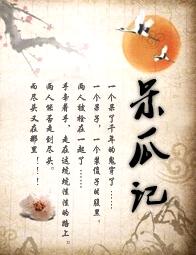 呆瓜记
一个呆了千年的鬼穿了……
一个呆子,一个装傻子的腹黑。
两人被拴在一起了……
手牵着手,走在这慌慌张张的路上。
两人能否走到尽头。
而尽头又在哪里!!!